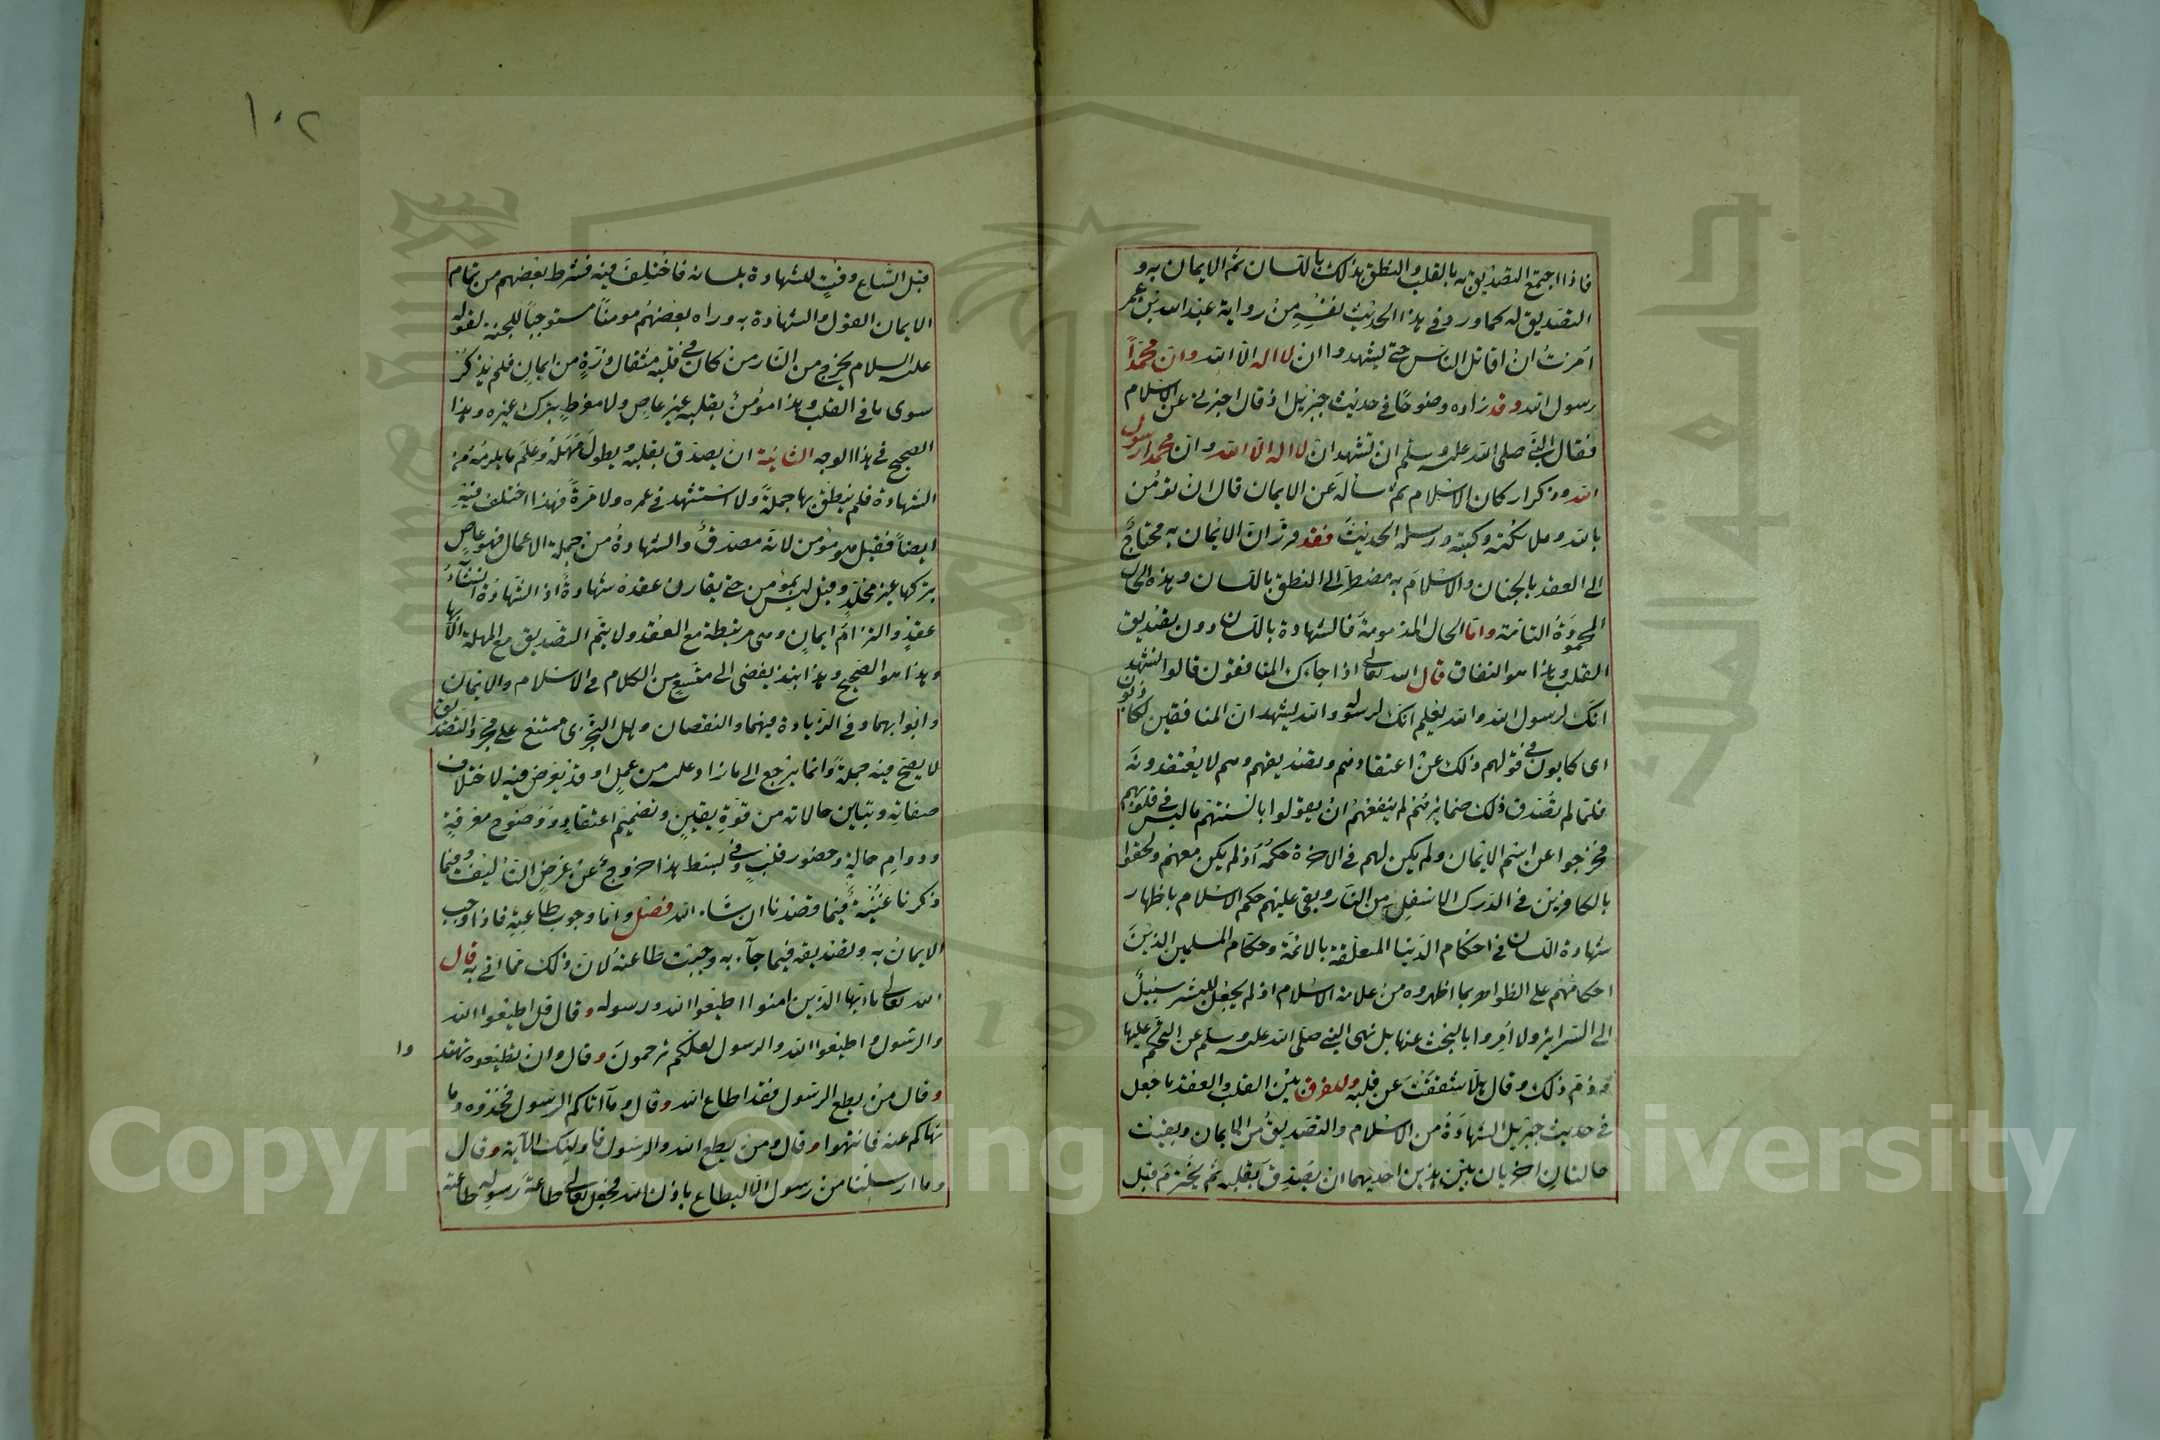 فاذا اجتمع التصديق به بالقلب والنطق بذلك باللسان ثم الايمان به و
التصديق له كما ورد في هذا الحديث نفسه من رواية عبد الله بن عمر
امرت ان اقاتل الناس حتى يشهدوا ان لا اله الا الله وان محمداً
رسول الله وقد زاده وضوحاً في حديث جبريل اذ قال اخبرني عن الاسلام
فقال النبي صلى الله عليه وسلم ان تشهد ان لا اله الا الله وان محمدا رسول
الله وذكر اركان الاسلام ثم سأله عن الايمان قال ان تؤمن
بالله وملائكته وكتبه ورسله الحديث فقد قرر ان الايمان به محتاج
الى العقد بالجنان والاسلام به مضطر الى النطق باللسان وهذه الحال
المحمودة التامة واما الحال المذمومة فالشهادة باللسان دون تصديق
القلب وهذا هو النفاق قال الله تعالى اذا جاءك المنافقون قالوا نشهد
انك لرسول الله والله يعلم انك لرسوله والله يشهد ان المنافقين لكاذبون
اى كاذبون في قولهم ذلك عن اعتقادهم وتصديقهم وهم لا يعتقدونه
فلما لم تصدق ذلك ضمائرهم لم ينفعهم ان يقولوا بالسنتهم ما ليس في قلوبهم
فخرجوا عن اسم الايمان ولم يكن لهم في الاخرة حكمه اذ لم يكن معهم ولحقوا
بالكافرين في الدرك الاسفل من النار وبقى عليهم حكم الاسلام باظهار
شهادة اللسان في احكام الدنيا المتعلقة بالائمة وحكام المسلمين الذين
احكامهم على الظواهر بما اظهروه من علامة الاسلام اذ لم يجعل للبشر سبيل
الى السرائر ولا امروا بالبحث عنها بل نهى النبي صلى الله عليه وسلم عن التحكم عليها
وذم ذلك وقال هلا شققت عن قلبه والفرق بين القلب والعقد ما جعل
في حديث جبريل الشهادة من الاسلام والتصديق من الايمان وبقيت
حالتان اخريان بين هذين احديهما ان يصدق بقلبه ثم يخترم قبل
١٠٢
قبل اتساع وقت للشهادة بلسانه فاختلف فيه فشرط بعضهم من تمام
الايمان القول والشهادة به وراه بعضهم مومناً مستوجباً للجنة لقوله
عليه السلام يخرج من النار من كان في قلبه مثقال ذرة من ايمان فلم يذكر
سوى ما في القلب وهذا مؤمن بقلبه غير عاص ولا مفرط بترك غيره وهذا
الصحيح في هذا الوجه الثانية ان يصدق بقلبه ويطول مهله وعلم ما يلزمه من
الشهادة فلم ينطق بها جملة ولا استشهد في عمره ولا مرة فهذا اختلف فيه
ايضاً فقيل هو مؤمن لانه مصدق والشهادة من جملة الاعمال فهو عاص
بتركها غير مخلد وقيل ليس بمؤمن حتى يقارن عقده شهادة اذ الشهادة انشاء
عقد والتزام ايمان وهى مرتبطة مع العقد ولا يتم التصديق مع المهلة الا بها
وهذا هو الصحيح وهذا نبذ يفضى الى متسع من الكلام في الاسلام والايمان
وابوابهما وفي الزيادة فيهما والنقصان وهل التجزى ممتنع على مجرد التصديق
لا يصح فيه جملة وانما يرجع الى ما زاد عليه من عمل او قد يعرض فيه لاختلاف
صفاته وتباين حالاته من قوة يقين وتصميم اعتقاد ووضوح معرفة
ودوام حالة وحضور قلب وفي بسط هذا خروج عن غرض التاليف وفيما
ذكرنا غنية فيما قصدنا ان شاء الله فصل واما وجوب طاعته فاذا وجب
الايمان به وتصديقه فيما جاء به وجبت طاعته لان ذلك مما اتى به قال
الله تعالى يا ايها الذين امنوا اطيعوا الله ورسوله وقال قل اطيعوا الله
والرسول واطيعوا الله والرسول لعلكم ترحمون وقال وان تطيعوه تهتدوا
وقال من يطع الرسول فقد اطاع الله وقال وما اتاكم الرسول فخذوه وما
نهاكم عنه فانتهوا وقال ومن يطع الله والرسول فاولئك الآية وقال
وما ارسلنا من رسول الا ليطاع باذن الله فجعل تعالى طاعة رسوله طاعته
Copyright © King Saud University